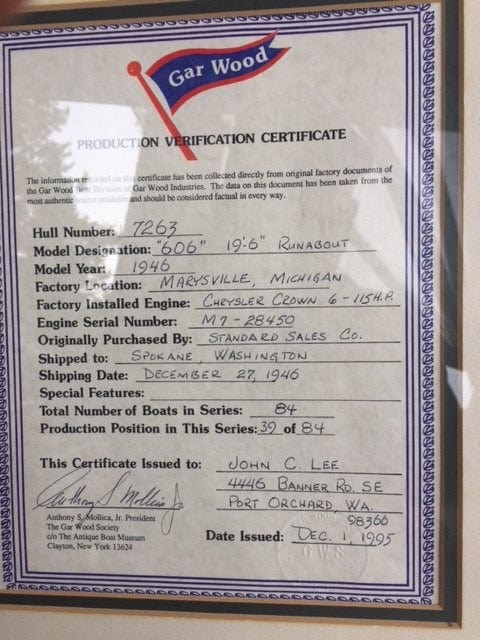 Gar Wood
PRODUCTION VERIFICATION CERTIFICATE
The information recorded on this certificate has been collected directly from original factory documents of
the Gar Wood Boat Division of Gar Wood Industries. The data on this document has been taken from the
most authentic source available and should be considered factual in every way.
Hull Number: 7263
Model Designation: "606" 19'-6" RUNABOUT
Model Year: 1946
Factory Location: MARYSVILLE, MICHIGAN
Factory Installed Engine: CHRYSLER CROWN 6 - 115 H.P.
Engine Serial Number: M7-28450
Originally Purchased By: STANDARD SALES CO.
Shipped to: SPOKANE, WASHINGTON
Shipping Date: DECEMBER 27, 1946
Special Features:
Total Number of Boats in Series: 84
Production Position in This Series: 39 of 84
This Certificate Issued to: JOHN C. LEE
4446 BANNER RD. SE
PORT ORCHARD, WA.
98366
Anthony S. Mollica Jr
Anthony S. Mollica, Jr. President
The Gar Wood Society
c/o The Antique Boat Museum
Clayton, New York 13624
Date Issued: DEC. 1, 1995
G.W.S.